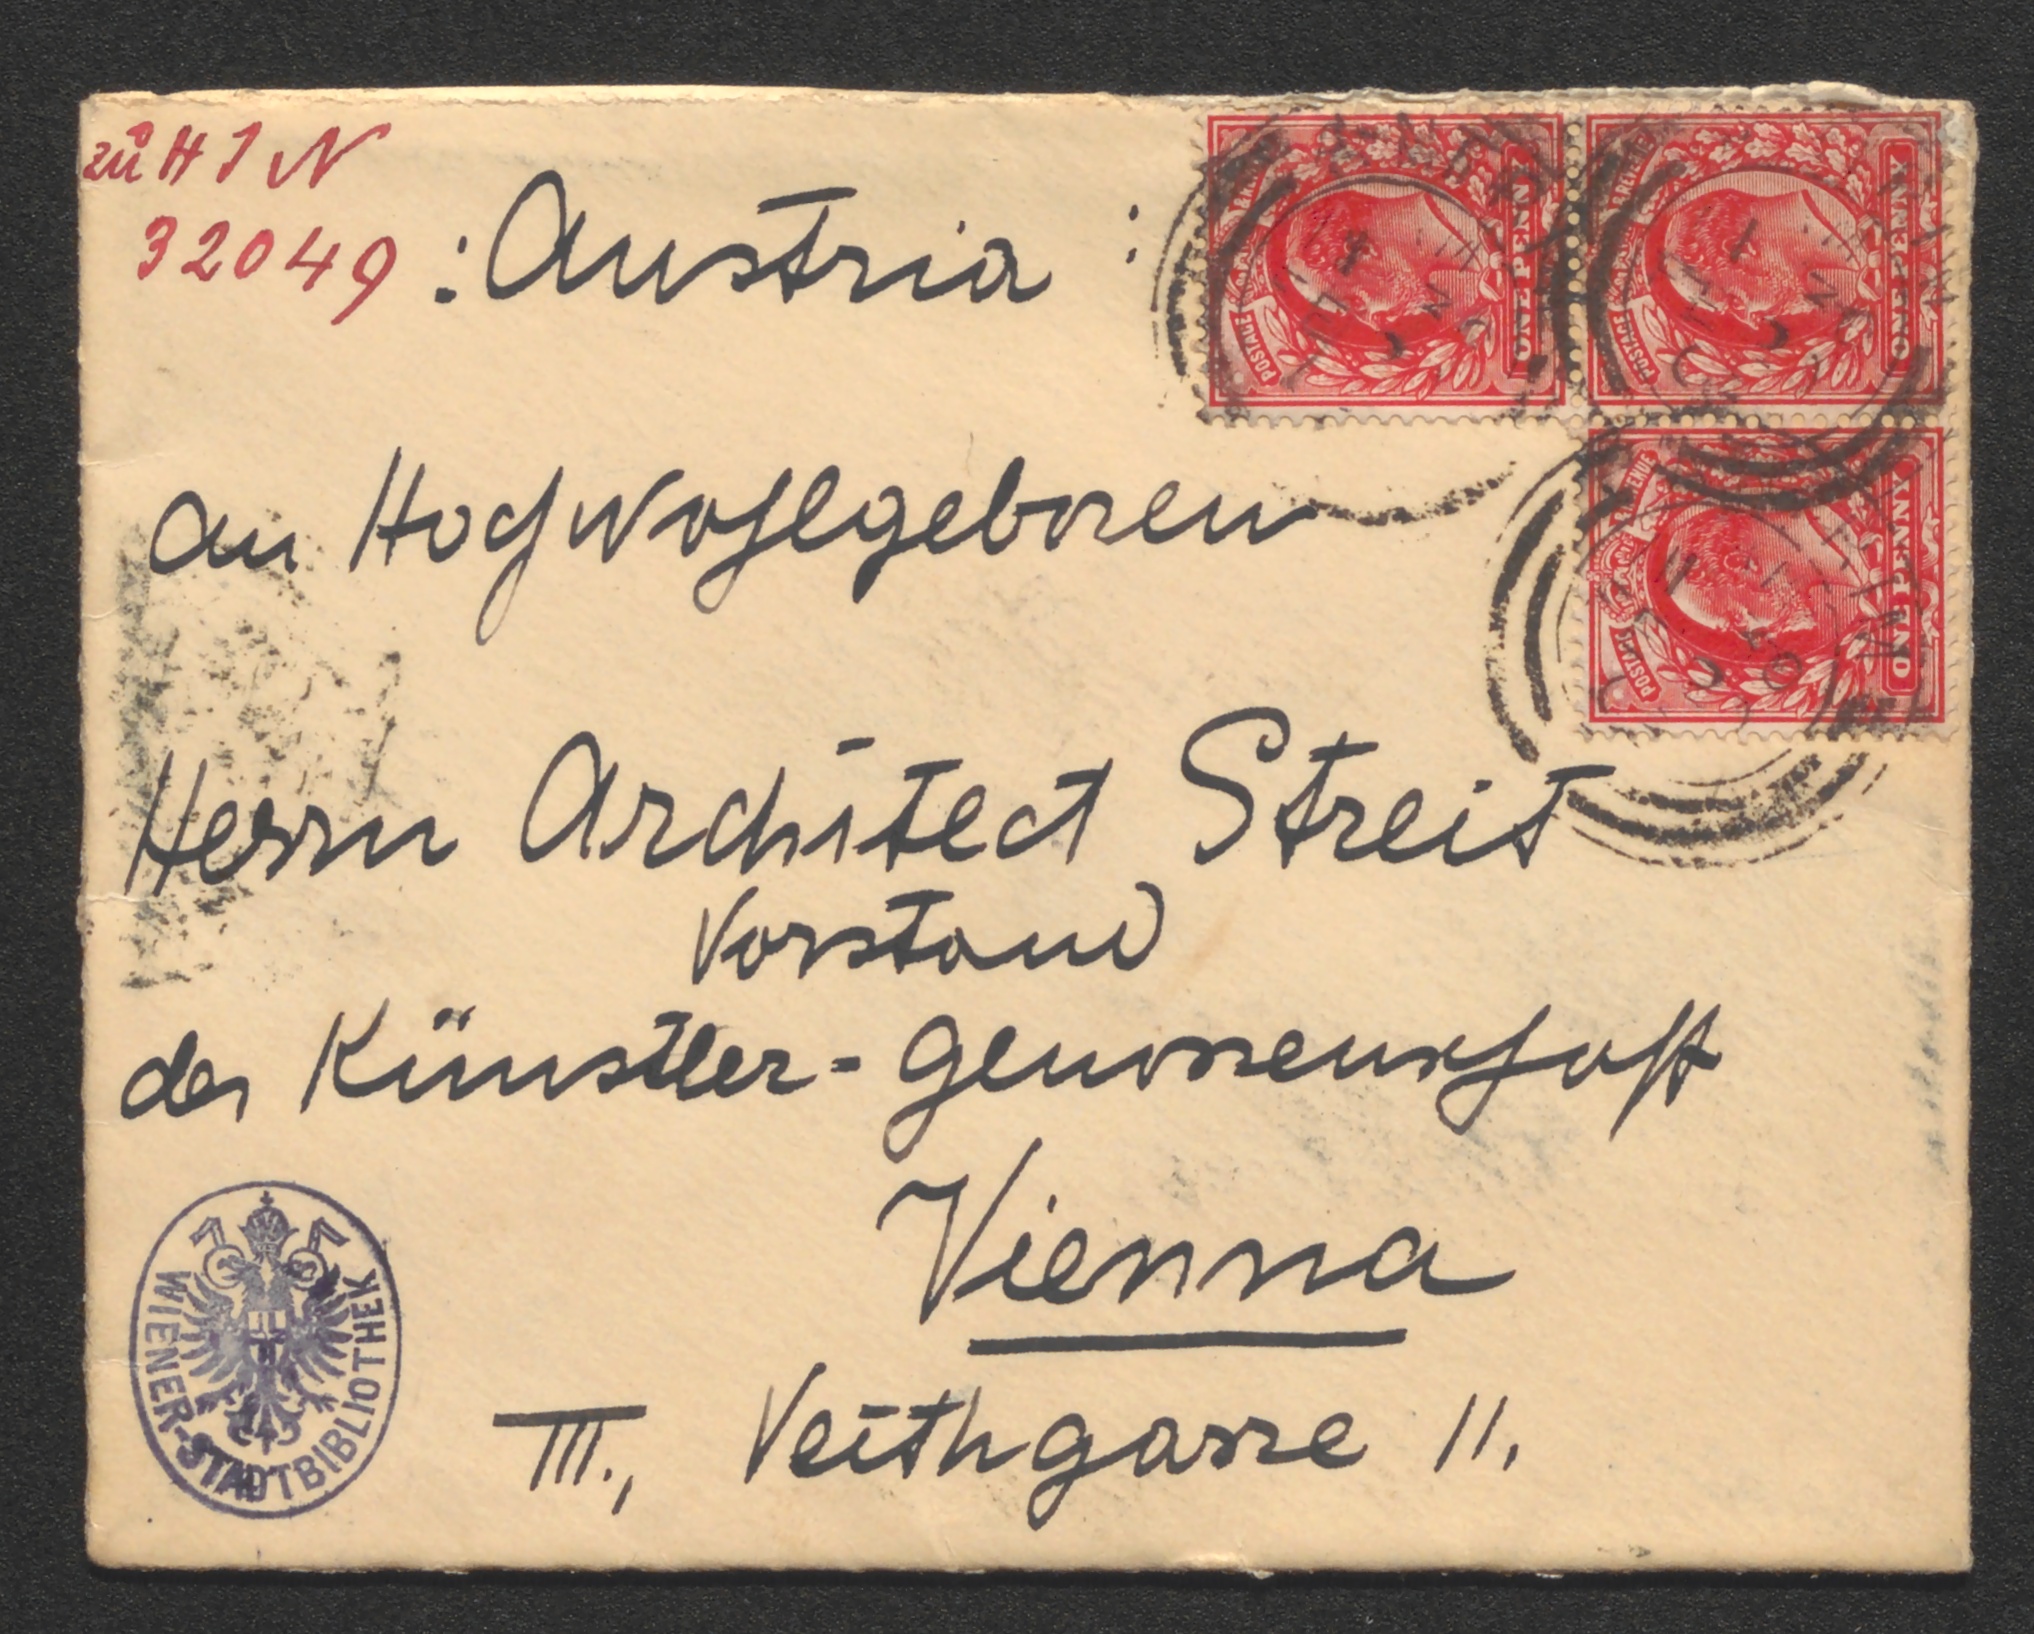 zu H I N
32049
: Austria :
An Hochwohlgeboren
Herrn Architect Streit
Vorstand
der Künstler-Genossenschaft
Vienna
III., Veithgasse 11.
WIENER-STADTBIBLIOTHEK
POSTAGE ONE PENNY
POSTAGE ONE PENNY
POSTAGE REVENUE ONE PENNY